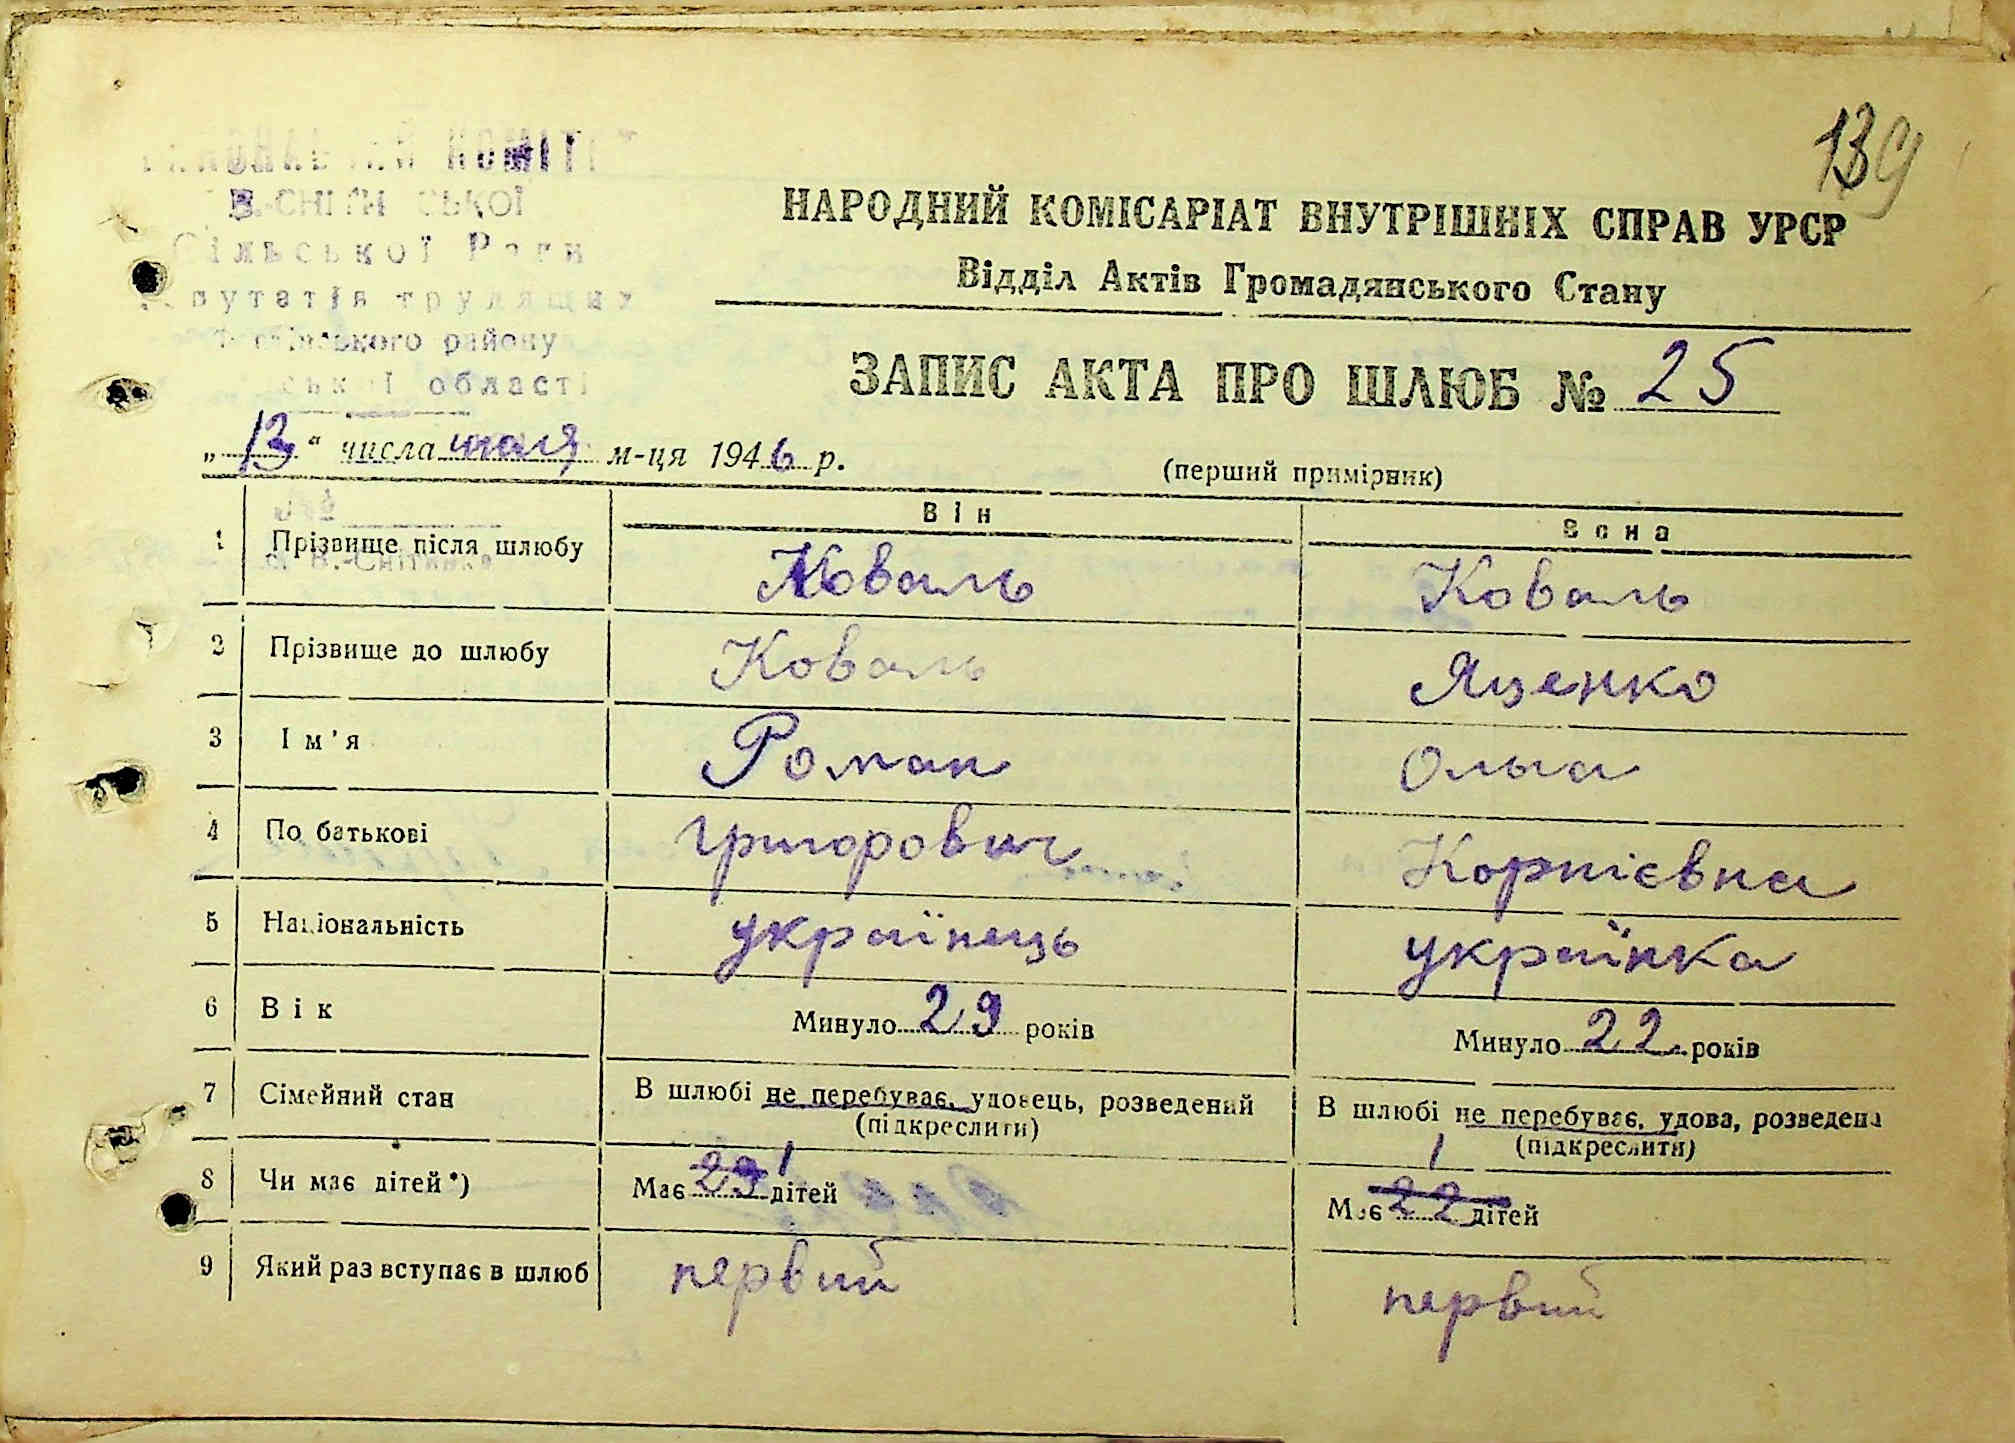 139
КОМІТЕТ
В.-СНІТИНСЬКОЇ
Сільської Ради
депутатів трудящих
району
області
НАРОДНИЙ КОМІСАРІАТ ВНУТРІШНІХ СПРАВ УРСР
Відділ Актів Громадянського Стану
ЗАПИС АКТА ПРО ШЛЮБ № 25
„ 13 “ числа июля м-ця 1946 р.
(перший примірник)
Він Вона
1 Прізвище після шлюбу Коваль Коваль
2 Прізвище до шлюбу Коваль Яценко
3 Ім'я Роман Ольга
4 По батькові Григорович Корнієвна
5 Національність українець українка
6 Вік Минуло 29 років Минуло 22 років
7 Сімейний стан В шлюбі не перебуває, удовець, розведений (підкреслити) В шлюбі не перебуває, удова, розведена (підкреслити)
8 Чи має дітей*) Має 29 1 дітей Має 22 1 дітей
9 Який раз вступає в шлюб первий первий